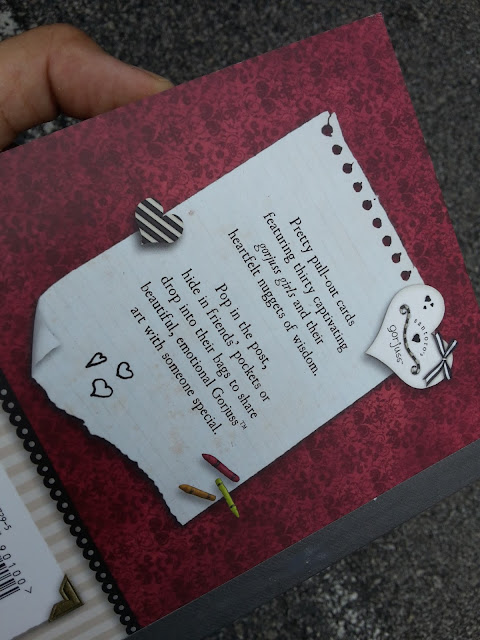 Pretty pull-out cards
featuring thirty captivating
gorjuss girls and their
heartfelt nuggets of wisdom.
Pop in the post,
hide in friends' pockets or
drop into their bags to share
beautiful, emotional Gorjuss™
art with someone special.
santoro's
gorjuss™
90100>